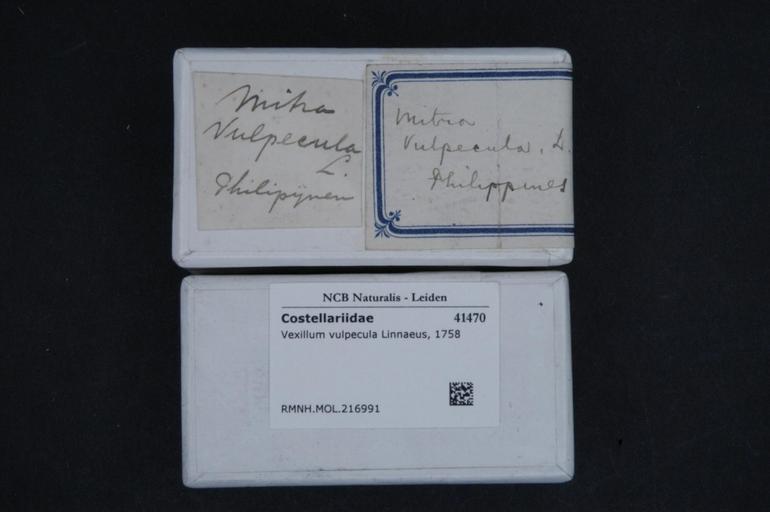 Mitra
Vulpecula
L.
Philipijnen
Mitra
Vulpecula. L.
Philippines
NCB Naturalis - Leiden
Costellariidae 41470
Vexillum vulpecula Linnaeus, 1758
RMNH.MOL.216991